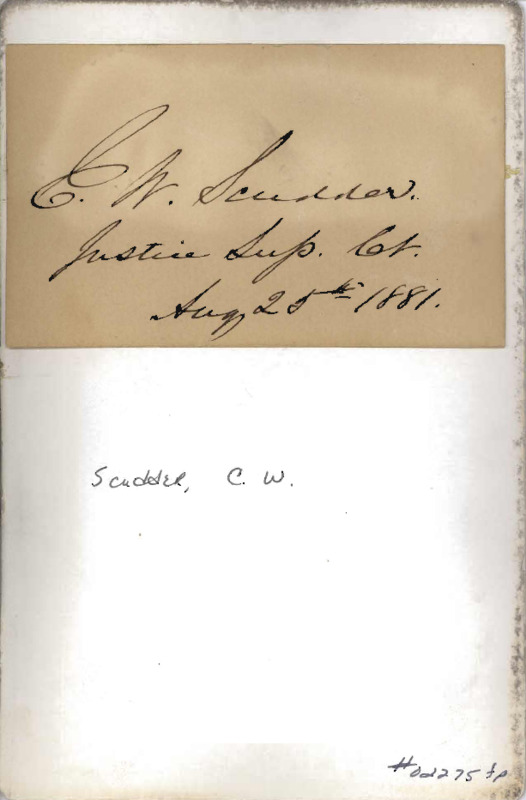 E. W. Scudder.
Justice Sup. Ct.
Aug 25th 1881.
Scudder, C. W.
#02275